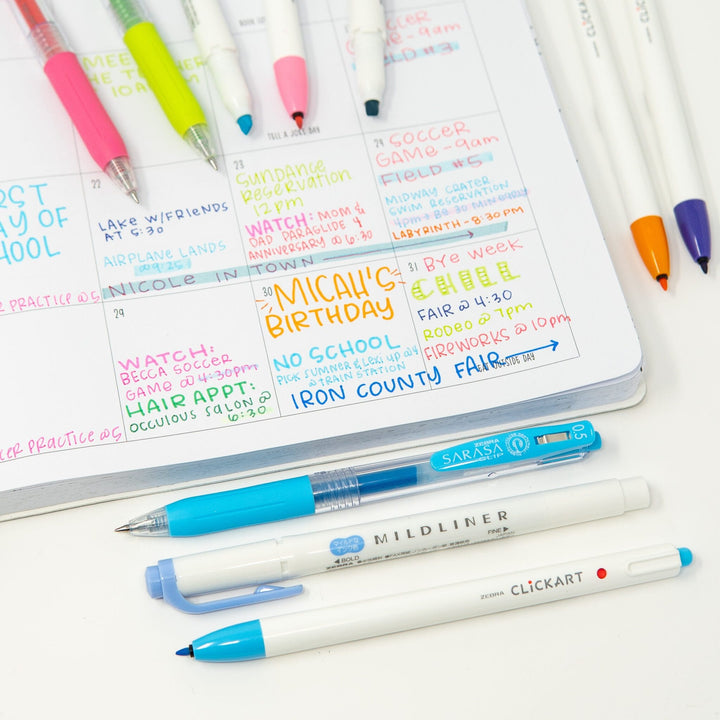 MEET
THE TEACHER
10AM
SOCCER
GAME - 9am
FIELD #3
TELL A JOKE DAY
FIRST
DAY OF
SCHOOL
22
LAKE W/FRIENDS
AT 5:30
AIRPLANE LANDS
@9:25
23
SUNDANCE
RESERVATION
12 PM
WATCH: MOM &
DAD PARAGLIDE 4
ANNIVERSARY @ 6:30
24
SOCCER
GAME - 9am
FIELD #5
MIDWAY CRATER
SWIM RESERVATION
4pm + BE 30 MIN early
LABYRINTH - 8:30 PM
NICOLE IN TOWN
PRACTICE @5
29
WATCH:
BECCA SOCCER
GAME @ 4:30pm
HAIR APPT:
OCCULOUS SALON @
6:30
30
MICAH'S
BIRTHDAY
NO SCHOOL
PICK SUMMER & LEXI UP @4
@ TRAIN STATION
31
BYE WEEK
CHILL
FAIR @ 4:30
RODEO @ 7pm
FIREWORKS @ 10pm
IRON COUNTY FAIR
EAT OUTSIDE DAY
PRACTICE @5
ZEBRA
SARASA
CLIP
0.5
MILDLINER
マイルドな
◀BOLD
FINE▶
ZEBRA
JAPAN
ZEBRA CLiCKART